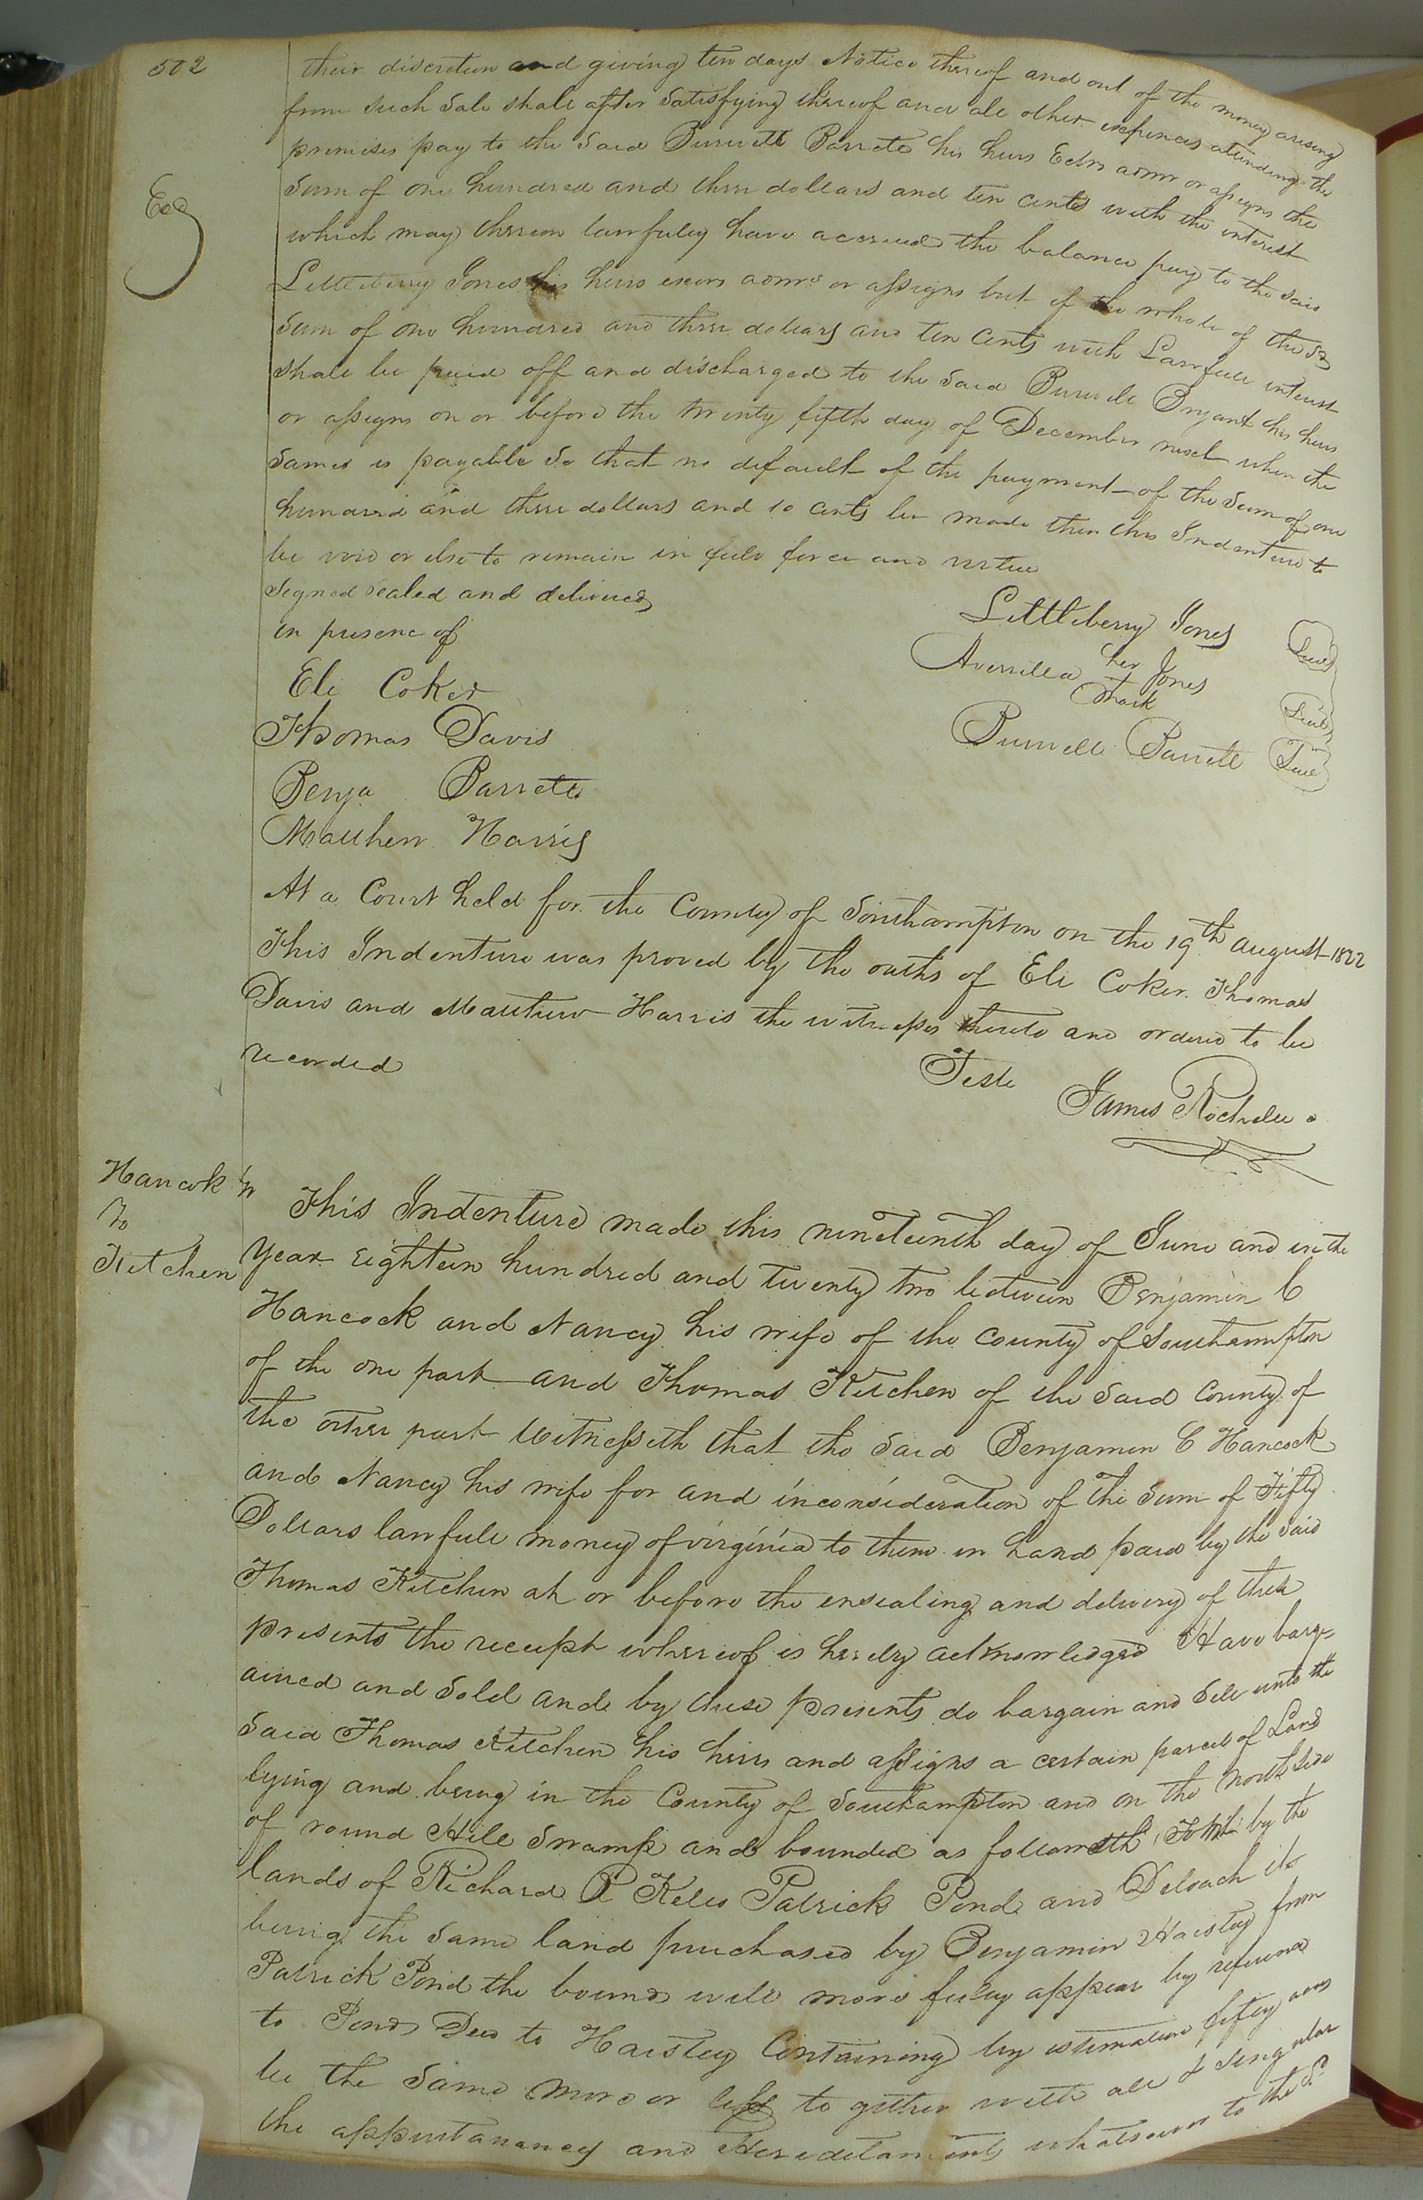 502
their discretion and giving ten days Notice thereof and out of the money arising
from such Sale shall after Satisfying thereof and all other expences attending the
premises pay to the Said Burwell Barrett his heirs Exõrs admr or assigns the
Sum of one hundred and three dollars and ten cents with the interest
which may thereon lawfully have accrued the balance pay to the said
Exd
Littleberry Jones his heirs exors admrs or assigns but if the whole of the Sd
Sum of one hundred and three dollars and ten Cents with Lawfull interest
shall be paid off and discharged to the Said Burwell Bryant his heirs
or assigns on or before the twenty fifth day of December next when the
Same is payable So that no default of the payment of the Sum of one
hundred and three dollars and 10 cents be made then this Indenture to
be void or else to remain in full force and virtue
Signed Sealed and delivered
in presence of
Littleberry Jones Seal
Averrilla her Jones Seal
mark
Burwell Barrett Seal
Eli Coker
Thomas Davis
Benja Barrett
Matthew Harris
At a Court held for the County of Southampton on the 19th August 1822
This Indenture was proved by the oaths of Eli Coker Thomas
Davis and Matthew Harris the witnesses thereto and ordered to be
recorded
Teste
James Rochelle
Hancok
To
Kitchen
This Indenture made this nineteenth day of June and in the
Year Eighteen hundred and twenty two between Benjamin C
Hancock and Nancy his wife of the County of Southampton
of the one part and Thomas Kitchen of the Said County of
the other part Witnesseth that the Said Benjamin C Hancock
and Nancy his wife for and inconsideration of the Sum of Fifty
Dollars lawfull money of virginia to them in hand paid by the Said
Thomas Kitchen at or before the ensealing and delivery of these
presents the receipt whereof is hereby acknowledged Have barg=
ained and Sold and by these presents do bargain and Sell unto the
Said Thomas Kitchen his heirs and assigns a certain parcel of Land
lying and being in the County of Southampton and on the North Side
of round Hill Swamp and bounded as followeth To Wit by the
lands of Richard P Kello Patrick Pond and Deloach it
being the Same land purchased by Benjamin Haistey from
Patrick Pond the bounds will more fully appear by referance
to Ponds Deed to Haistey Containing by estimation fifty acres
be the Same more or less to gether with all & Singular
the appurtanancy and Hereditaments whatsoever to the Sd